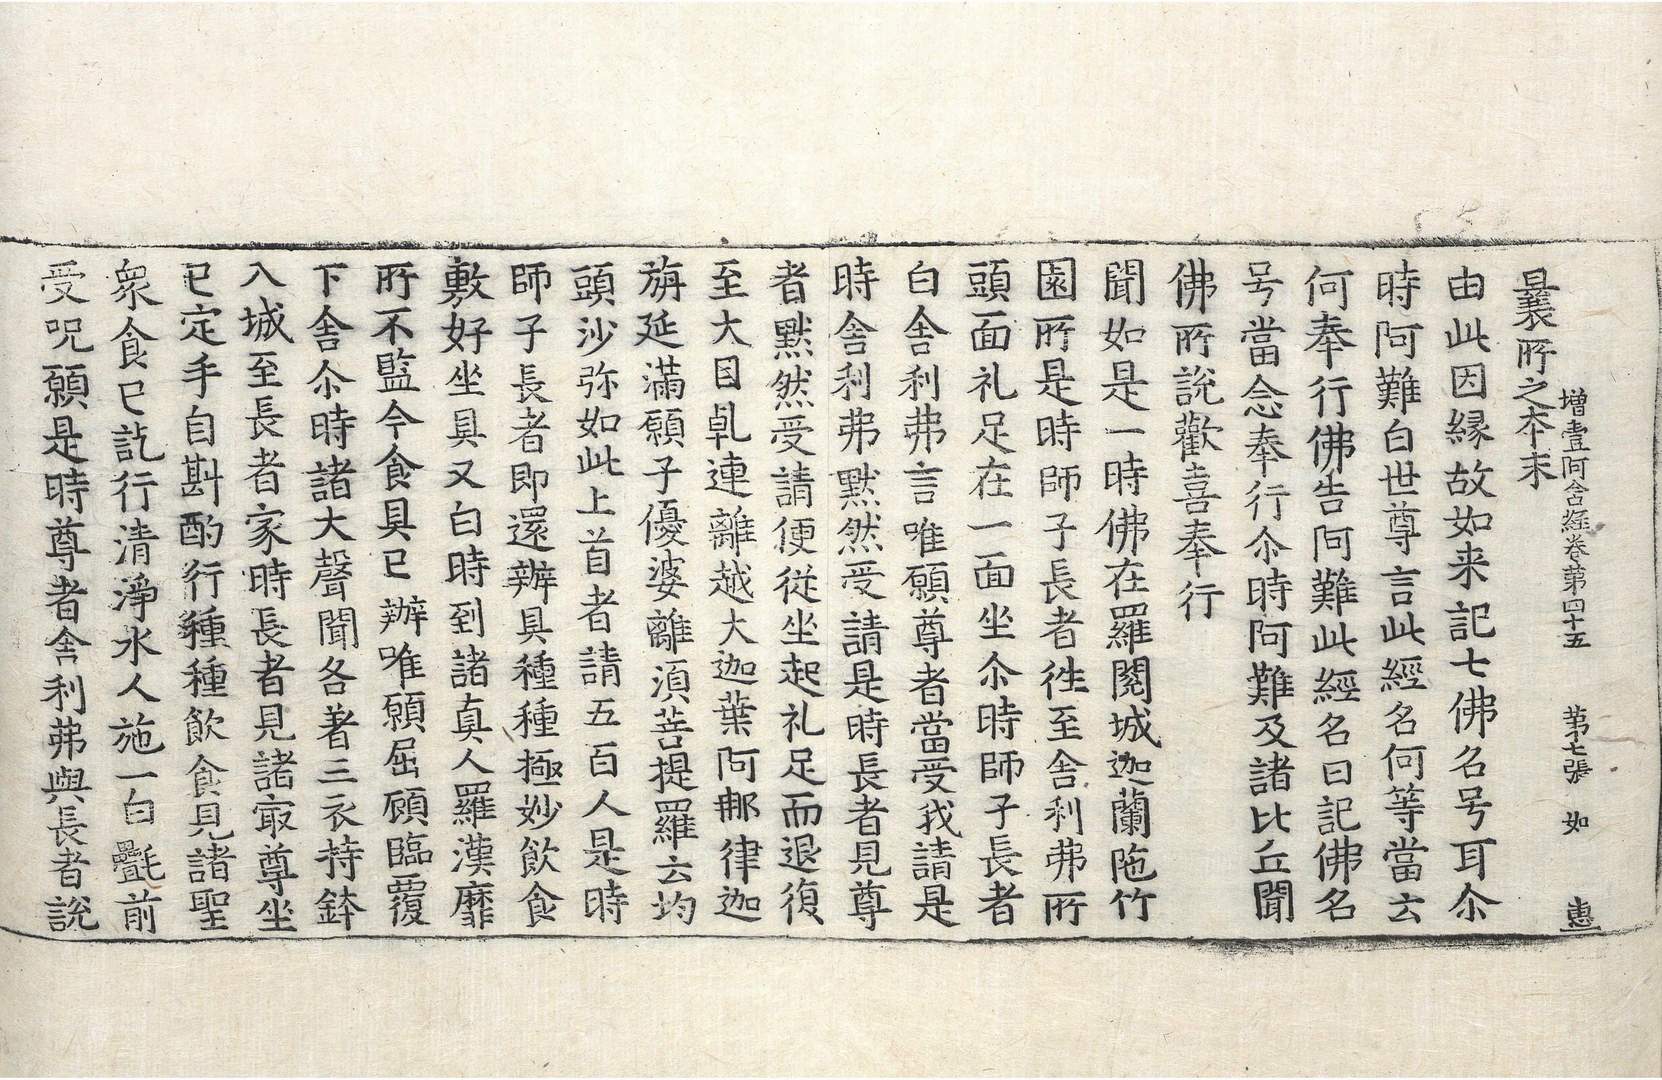 増壹阿含經卷第四十五　第七張　如　惠
曩所之本末
由此因緣故如来記七佛名号耳尒
時阿難白世尊言此經名何等當云
何奉行佛告阿難此經名曰記佛名
号當念奉行尒時阿難及諸比丘聞
佛所說歡喜奉行
聞如是一時佛在羅閱城迦蘭陁竹
園所是時師子長者徃至舍利弗所
頭面礼足在一面坐尒時師子長者
白舍利弗言唯願尊者當受我請是
時舍利弗黙然受請是時長者見尊
者黙然受請便從坐起礼足而退復
至大目乹連離越大迦葉阿那律迦
旃延滿願子優婆離湏菩提羅云均
頭沙弥如此上首者請五百人是時
師子長者即還辦具種種極妙飲食
敷好坐具又白時到諸真人羅漢靡
所不監今食具已辦唯願屈顧臨覆
下舍尒時諸大聲聞各著三衣持鉢
入城至長者家時長者見諸冣尊坐
已定手自斟酌行種種飲食見諸聖
衆食已訖行清淨水人施一白㲲前
受呪願是時尊者舍利弗與長者說